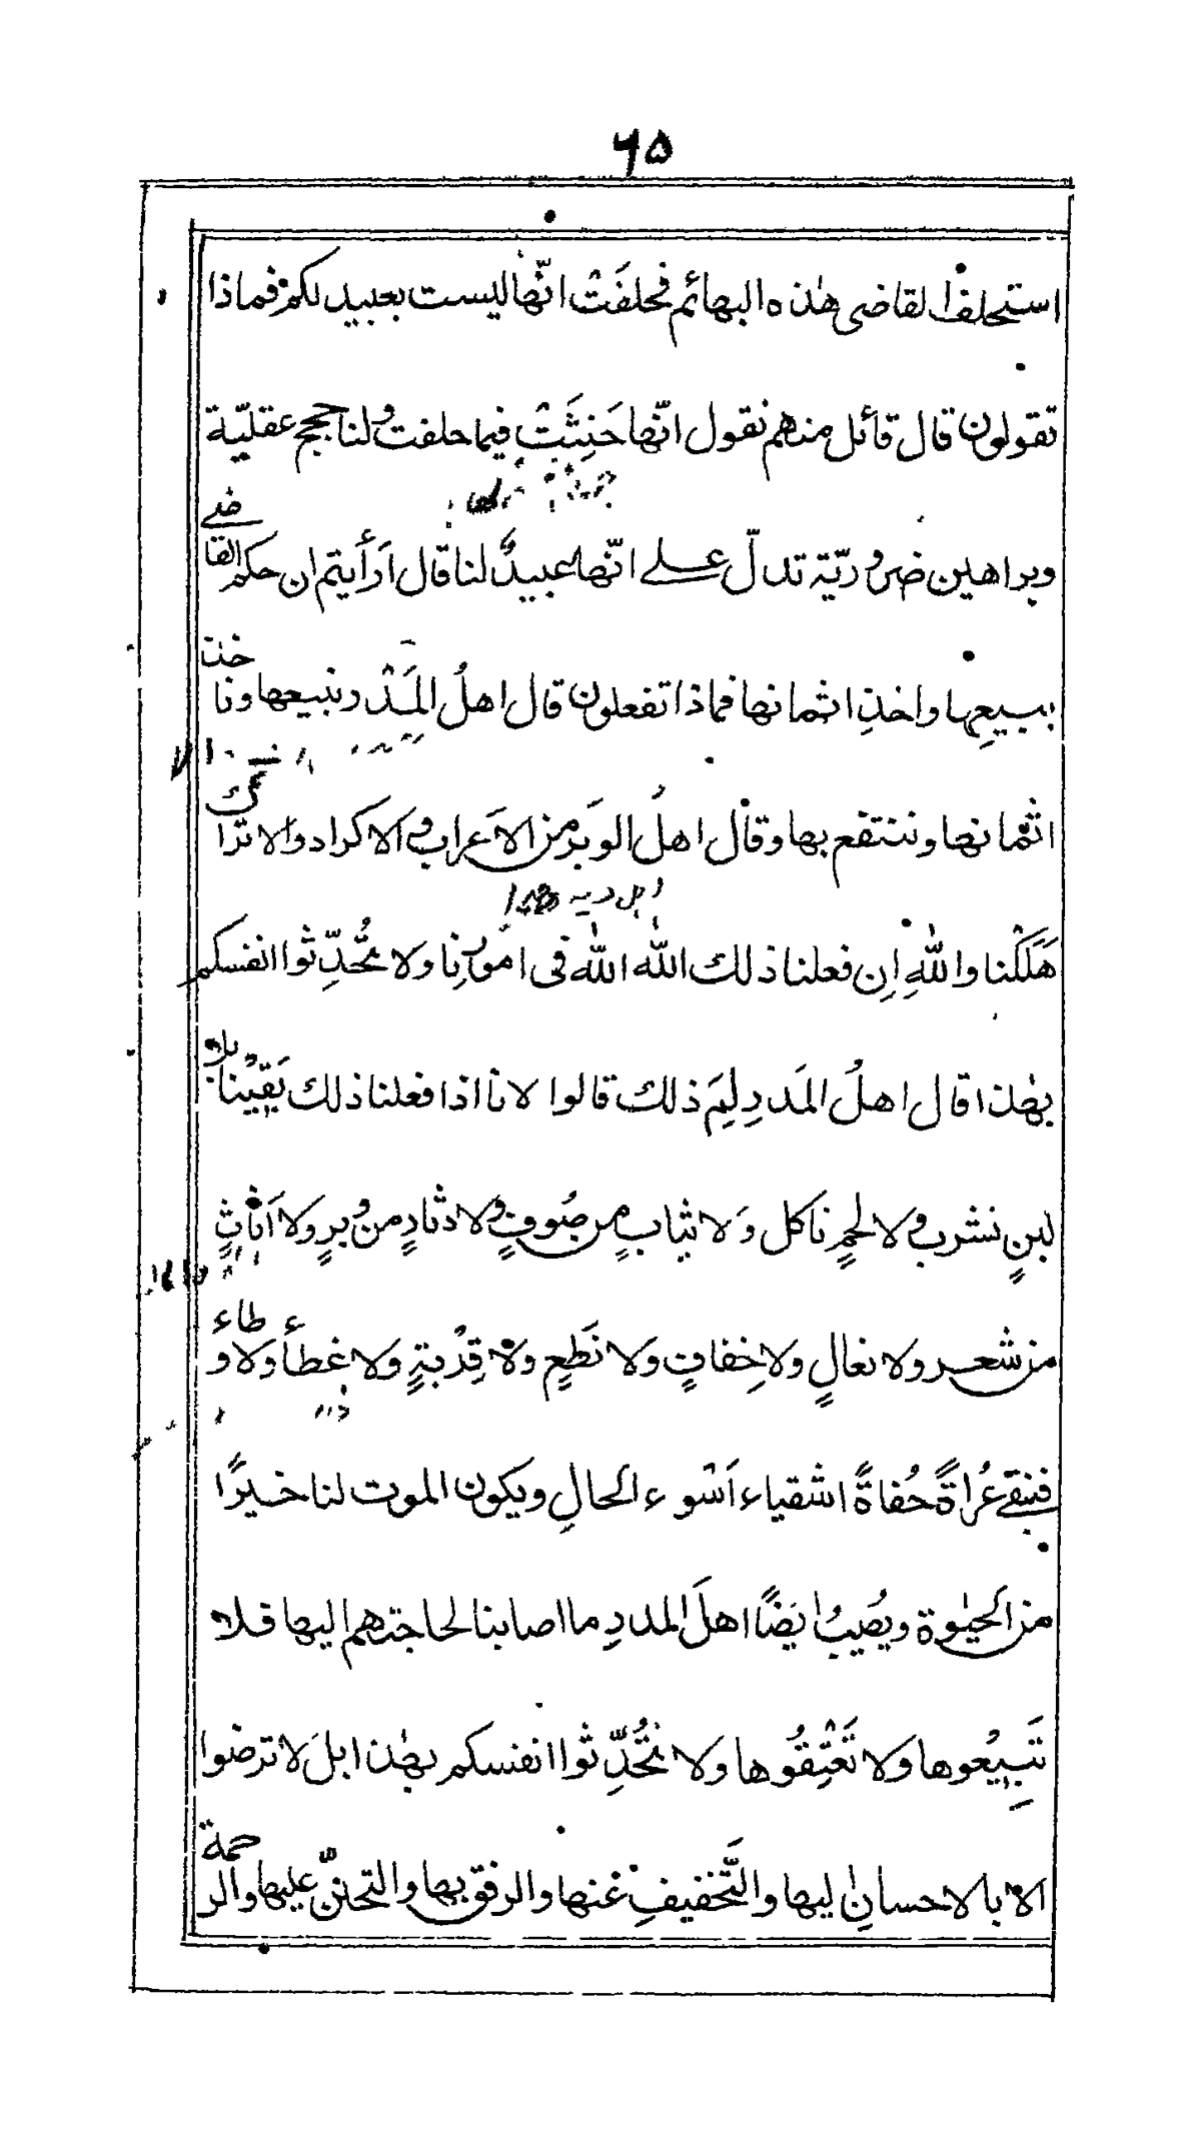 ٦٥
استحلف القاضى هٰذه البهائم فحلفَتْ انّها ليست بعبيد لكم فماذا
تقولون قال قائل منهم نقول انّها حَنِثَتْ فيما حلفت ولنا حجج عقليّة
وبراهين ضروريّة تدلّ علے انّها عبيدٌ لنا قال اَرأيتم ان حكم القاضے
ببيعِها واخذِ اثمانها فماذا تفعلون قال اهلُ المَدَر نبيعها وناخذ
اثمانها وننتفع بها وقال اهلُ الوبَر من الاَعراب والاكراد والاتراك
هَلَكْنا واللهِ اِن فعلنا ذلك اللهَ اللهَ فى امورِنا ولا تُحَدِّثوا انفسكم
بهٰذا قال اهلُ المَدرِ لِمَ ذلك قالوا لانا اذا فعلنا ذلك بَقِيْنا بلا
لبنٍ نشرب ولا لحمٍ ناكل وَلا ثيابٍ من صُوفٍ ولا دثارٍ من وبرٍ ولا اَثاثٍ
من شعر ولا نعالٍ ولا خِفافٍ ولا نَطعٍ ولا قِرْبةٍ ولا غطاءٍ ولا وطاء
فنبقے عُراةً حُفاةً اشقياء اَسْوء الحالِ ويكون الموت لنا خيرًا
من الحيٰوة ويُصيبُ ايضًا اهلَ المدرِ ما اصابنا لحاجتهم اليها فلا
تَبِيْعُوها ولا تَعْتِقُوها ولا تُحَدِّثوا انفسكم بهٰذا بل لا ترضوا
الا بالاحسانِ اليها والتَّخفيفِ عنها والرفق بها والتحنّنِ عليها والرحمة